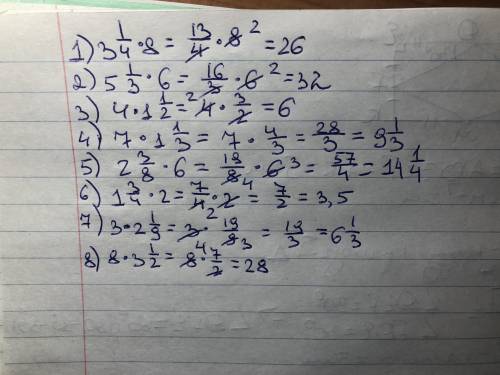 1) 3 1/4 · 8 = 13/4 · 8 2 = 26
2) 5 1/3 · 6 = 16/3 · 6 2 = 32
3) 4 · 1 1/2 = 2 4 · 3/2 = 6
4) 7 · 1 1/3 = 7 · 4/3 = 28/3 = 9 1/3
5) 2 3/8 · 6 = 19/8 · 6 3 = 57/4 = 14 1/4
6) 1 3/4 · 2 = 7/4 · 2 4 = 7/2 = 3,5
7) 3 · 2 1/9 = 3 2 · 19/9 3 = 19/3 = 6 1/3
8) 8 · 3 1/2 = 8 4 · 7/2 = 28